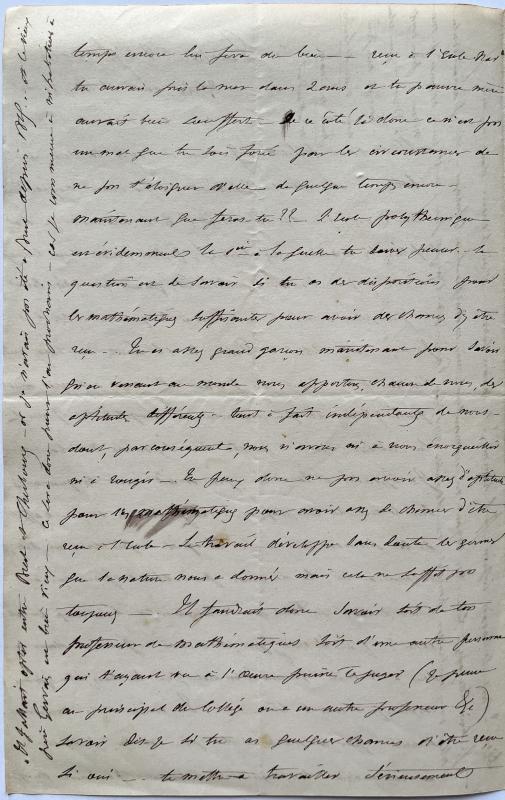 temps encore lui fera du bien — reçu à l'Ecole Navle
tu aurais pris la mer dans 2 ans et ta pauvre mère
aurait bien souffert — de ce côté là donc ce n'est pas
un mal que tu sois forcé par les circonstances de
ne pas t'éloigner d'elle de quelque temps encore —
maintenant que feras tu ?? l'école polytechnique
est évidemment la 1ère à laquelle tu dois penser. la
question est de savoir si tu as des dispositions pour
les mathématiques suffisantes pour avoir des chances d'y être
reçu — Tu es assez grand garçon maintenant pour savoir
qu'en venant au monde nous apportons, chacun de nous, des
aptitudes différentes — tout à fait indépendantes de nous —
dont, par conséquent, nous n'avons ni à nous enorgueillir
ni à rougir — Tu peux donc ne pas avoir assez d'aptitude
pour les mathématiques pour avoir assez de chances d'être
reçu à l'école — Le travail développe sans doute les germes
que la nature nous a donnés mais cela ne suffit pas
toujours — Il faudrait donc savoir soit de ton
professeur de mathématiques soit d'une autre personne
qui t'ayant vu à l'œuvre puisse te juger (je pense
au principal du Collège ou à un autre professeur &c)
savoir dis-je si tu as quelques chances d'être reçu
si oui — te mettre à travailler sérieusement
Il fallait opter entre Brest et Cherbourg — or je n'avais pas été à Brest depuis et le vieux
frère Gervais est bien vieux — car je commence à m'habituer à